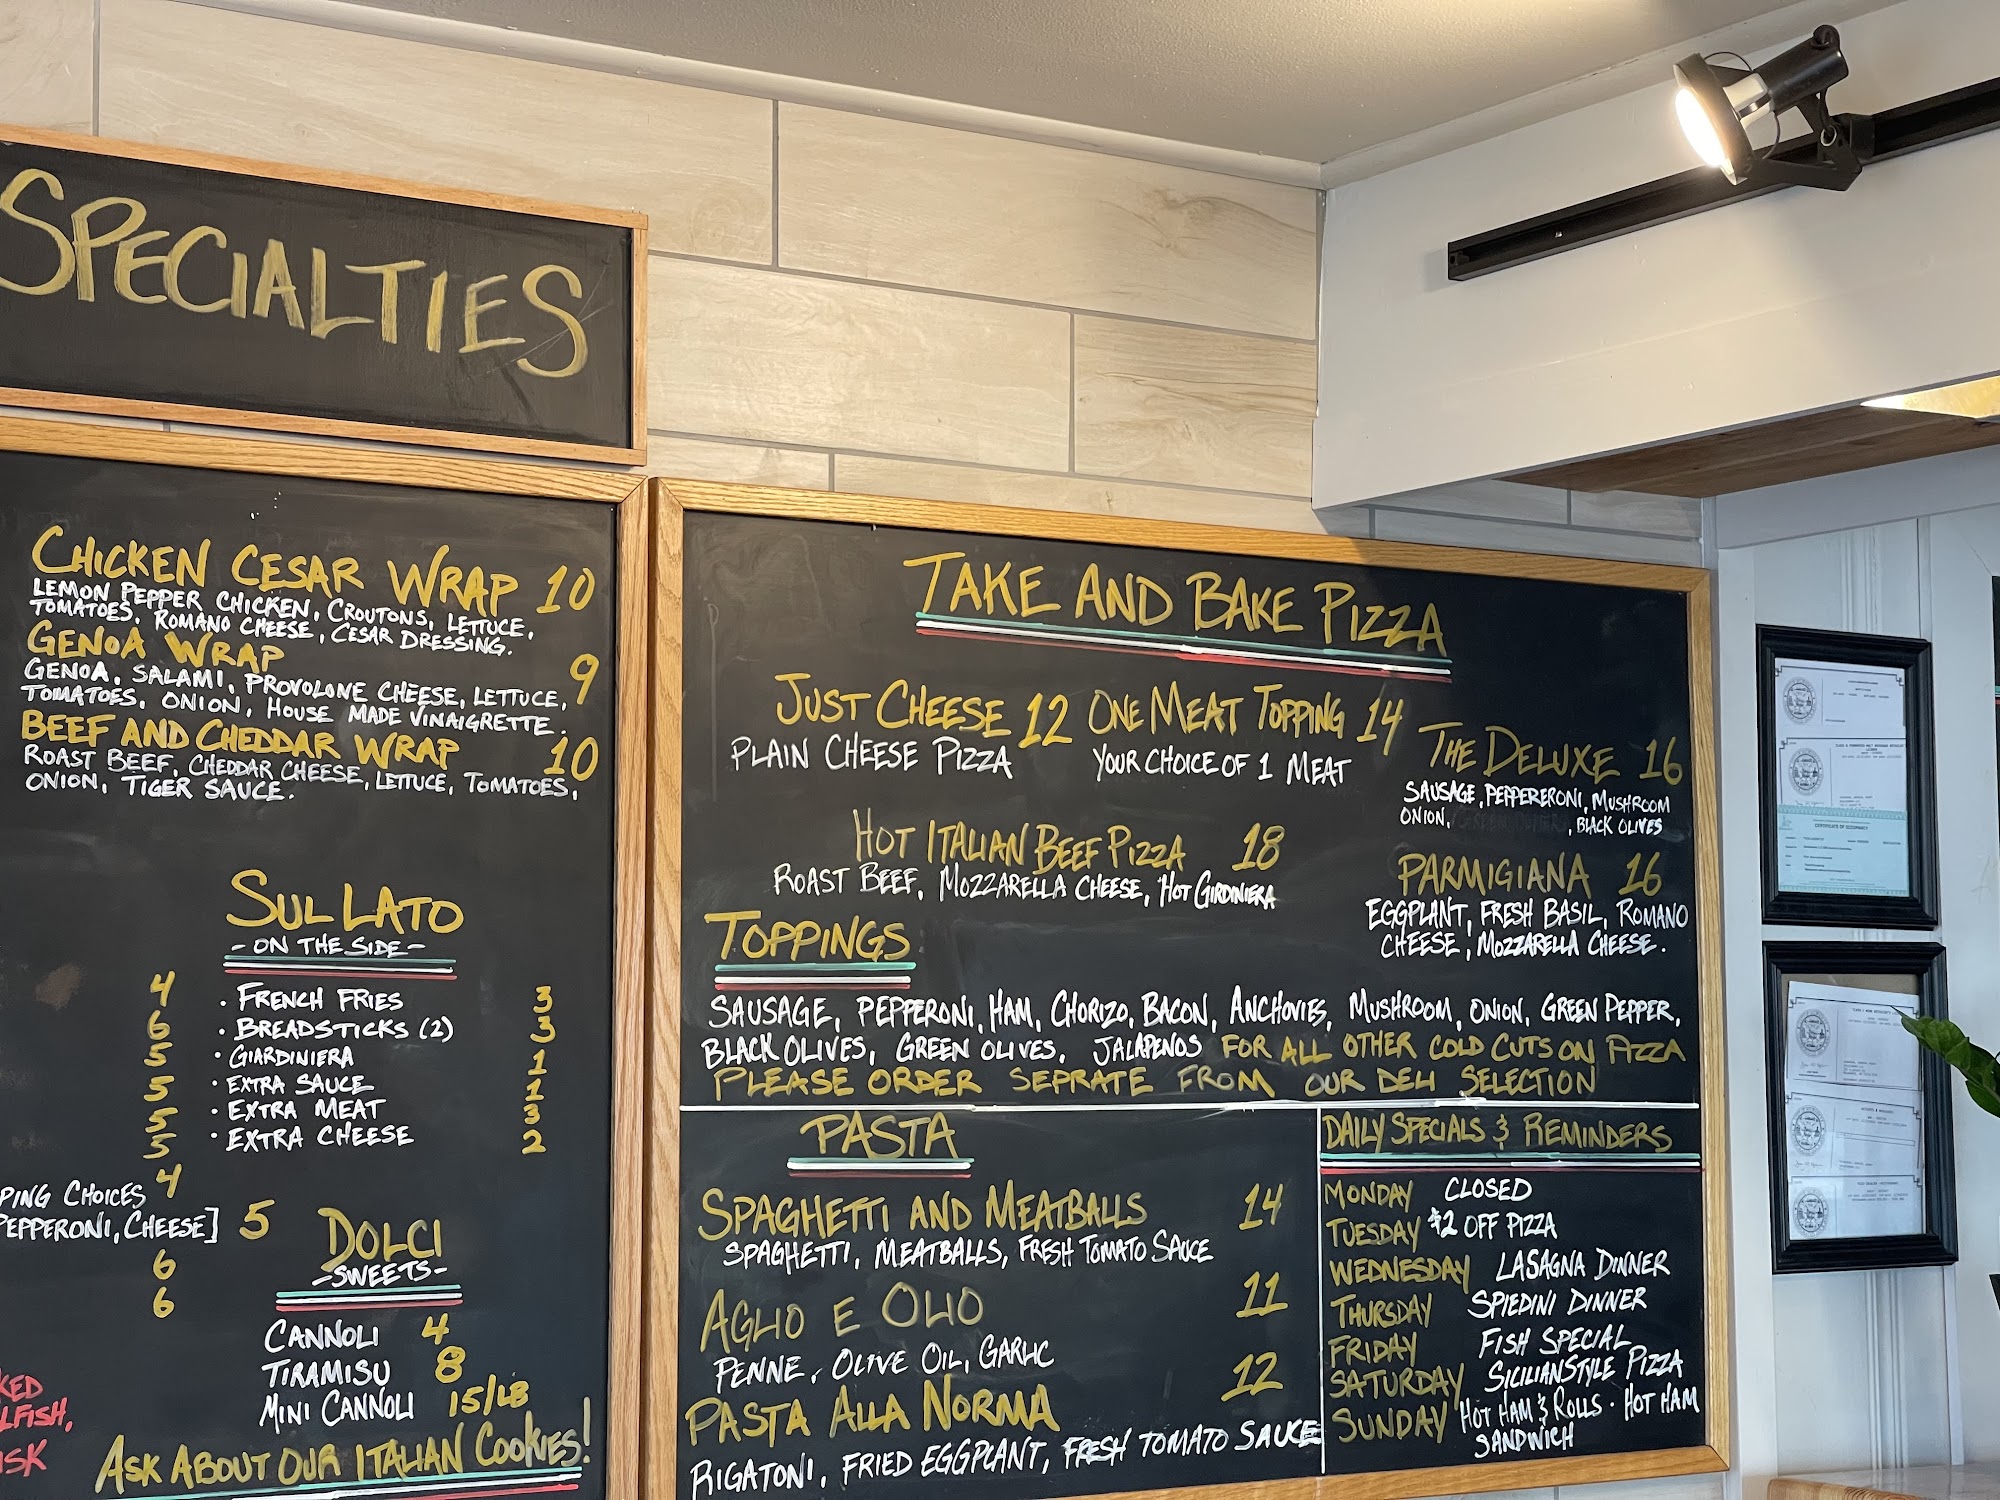 SPECIALTIES
CHICKEN CESAR WRAP 10
LEMON PEPPER CHICKEN, CROUTONS, LETTUCE,
TOMATOES, ROMANO CHEESE, CESAR DRESSING.
GENOA WRAP 9
GENOA, SALAMI, PROVOLONE CHEESE, LETTUCE,
TOMATOES, ONION, HOUSE MADE VINAIGRETTE.
BEEF AND CHEDDAR WRAP 10
ROAST BEEF, CHEDDAR CHEESE, LETTUCE, TOMATOES,
ONION, TIGER SAUCE.
SUL LATO
- ON THE SIDE -
4
6
5
5
5
5
4
PING CHOICES
PEPPERONI, CHEESE] 5
6
6
· FRENCH FRIES 3
· BREADSTICKS (2) 3
· GIARDINIERA 1
· EXTRA SAUCE 1
· EXTRA MEAT 3
· EXTRA CHEESE 2
DOLCI
- SWEETS -
CANNOLI 4
TIRAMISU 8
MINI CANNOLI 15/LB
KED
LFISH,
ISK
ASK ABOUT OUR ITALIAN COOKIES!
TAKE AND BAKE PIZZA
JUST CHEESE 12
PLAIN CHEESE PIZZA
ONE MEAT TOPPING 14
YOUR CHOICE OF 1 MEAT
THE DELUXE 16
SAUSAGE, PEPPERERONI, MUSHROOM
ONION, , BLACK OLIVES
HOT ITALIAN BEEF PIZZA 18
ROAST BEEF, MOZZARELLA CHEESE, HOT GIRDINIERA
PARMIGIANA 16
EGGPLANT, FRESH BASIL, ROMANO
CHEESE, MOZZARELLA CHEESE.
TOPPINGS
SAUSAGE, PEPPERONI, HAM, CHORIZO, BACON, ANCHOVIES, MUSHROOM, ONION, GREEN PEPPER,
BLACK OLIVES, GREEN OLIVES, JALAPENOS FOR ALL OTHER COLD CUTS ON PIZZA
PLEASE ORDER SEPRATE FROM OUR DELI SELECTION
PASTA
SPAGHETTI AND MEATBALLS 14
SPAGHETTI, MEATBALLS, FRESH TOMATO SAUCE
AGLIO E OLIO 11
PENNE, OLIVE OIL, GARLIC
PASTA ALLA NORMA 12
RIGATONI, FRIED EGGPLANT, FRESH TOMATO SAUCE
DAILY SPECIALS & REMINDERS
MONDAY CLOSED
TUESDAY $2 OFF PIZZA
WEDNESDAY LASAGNA DINNER
THURSDAY SPIEDINI DINNER
FRIDAY FISH SPECIAL
SATURDAY SICILIANSTYLE PIZZA
SUNDAY HOT HAM & ROLLS · HOT HAM
SANDWICH
CERTIFICATE OF OCCUPANCY